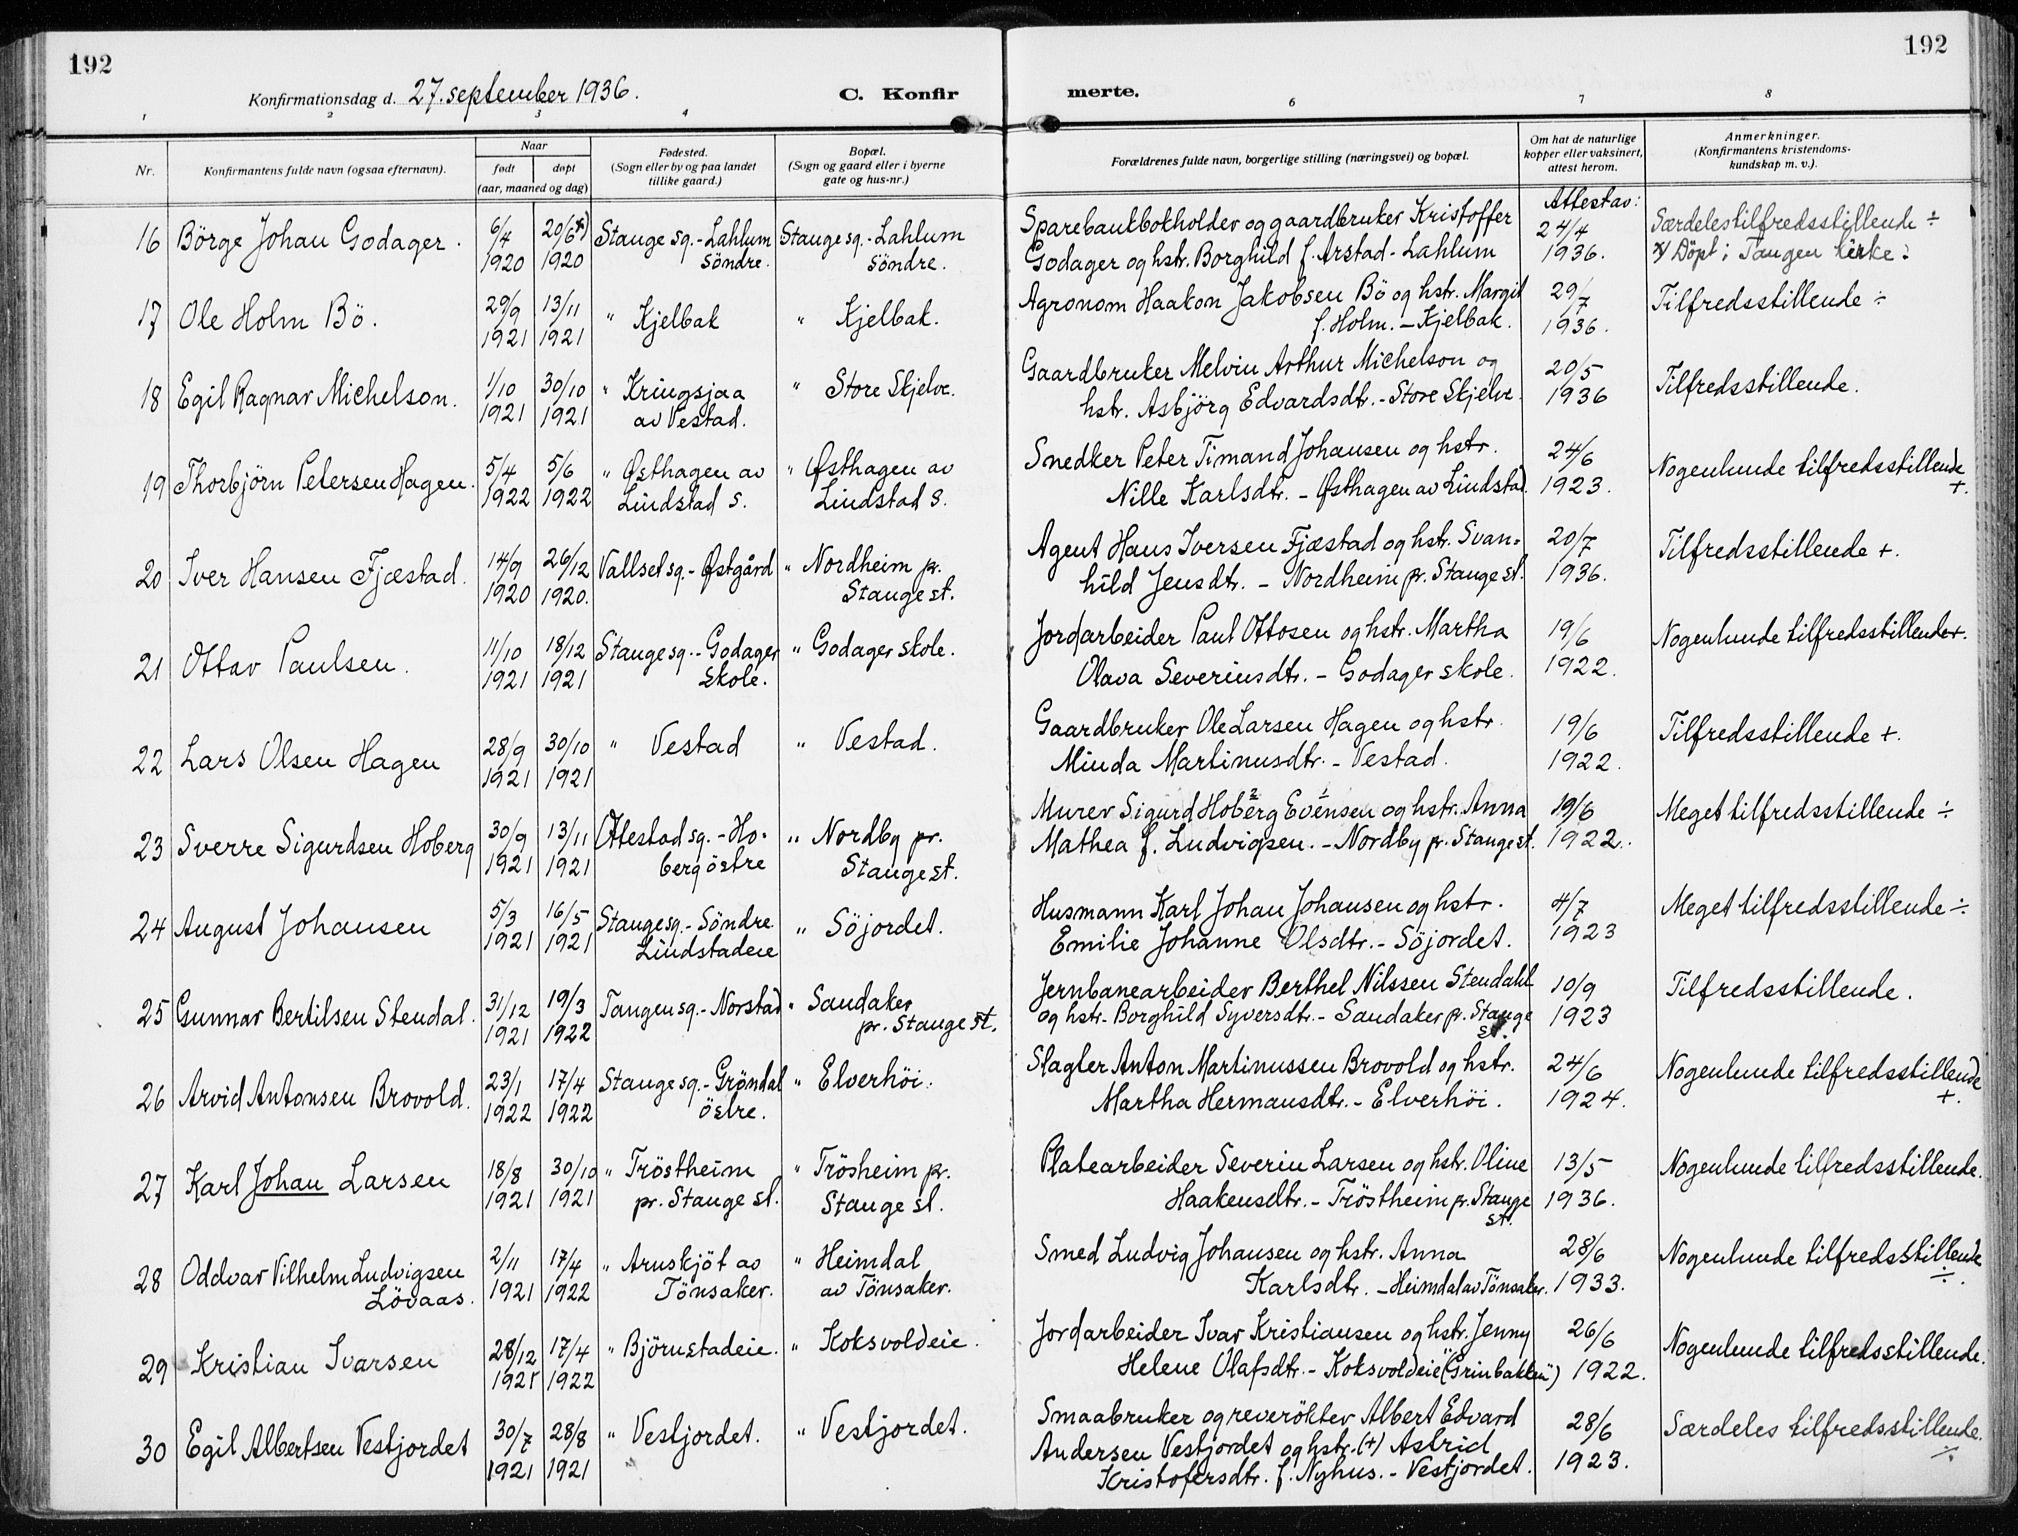 192
192
Konfirmationsdag d. 27. september 1936.
C. Konfir
merte.
1 2 3 4 6 7 8
Nr.
Konfirmantens fulde navn (ogsaa efternavn).
Naar
født døpt
(aar, maaned og dag)
Fødested.
(Sogn eller by og paa landet
tillike gaard.)
Bopæl.
(Sogn og gaard eller i byerne
gate og hus-nr.)
Forældrenes fulde navn, borgerlige stilling (næringsvei) og bopæl.
Om hat de naturlige
kopper eller vaksinert,
attest herom.
Anmerkninger.
(Konfirmantens kristendoms-
kundskap m. v.).
Attest av:
16 Börge Johan Godager. 6/4 20/6 x) Stange sg. - Lahlum Stange sg. - Lahlum Sparebankbokholder og gaardbruker Kristoffer 24/4 Særdeles tilfredsstillende ÷
1920 1920 söndre. söndre. Godager og hstr. Borghild f. Arstad - Lahlum 1936. x) Döpt i Tangen kirke.
17 Ole Holm Bö. 29/9 13/11 " Kjelbak " Kjelbak. Agronom Haakon Jakobsen Bö og hstr. Margit 29/7 Tilfredsstillende ÷
1921 1921 f. Holm. - Kjelbak. 1936.
18 Egil Ragnar Michelson. 1/10 30/10 " Kringsjaa " Store Skjelve. Gaardbruker Melvin Arthur Michelson og 20/5 Tilfredsstillende.
1921 1921 av Vestad. hstr. Asbjörg Edvardsdtr. - Store Skjelve. 1936
19 Thorbjörn Petersen Hagen. 5/4 5/6 " Østhagen av " Østhagen av Snedker Peter Timand Johansen og hstr. 24/6 Nogenlunde tilfredsstillende
1922 1922 Lindstad S. Lindstad S. Nille Karlsdtr. - Østhagen av Lindstad. 1923. +.
20 Iver Hansen Fjæstad. 14/9 26/12 Vallset sg. - Østgård " Nordheim pr. Agent Hans Iversen Fjæstad og hstr. Svan= 20/7 Tilfredsstillende +.
1920 1920. Stange st. hild Jensdtr. - Nordheim pr. Stange st. 1936.
21 Ottar Paulsen. 11/10 18/12 Stange sg. - Godager " Godager skole. Jordarbeider Paul Ottosen og hstr. Martha 19/6 Nogenlunde tilfredsstillende +.
1921 1921 skole. Olava Severinsdtr. - Godager skole. 1922.
22 Lars Olsen Hagen 28/9 30/10 " Vestad " Vestad. Gaardbruker Ole Larsen Hagen og hstr. 19/6 Tilfredsstillende +.
1921 1921 Minda Martinusdtr. - Vestad. 1922.
23 Sverre Sigurdsen Hoberg 30/9 13/11 Ottestad sg. - Ho- " Nordby pr. Murer Sigurd Hoberg 2 Evensen 1 og hstr. Anna 19/6 Meget tilfredsstillende ÷
1921 1921 berg östre Stange st. Mathea f. Ludvigsen. - Nordby pr. Stange st. 1922.
24 August Johansen 5/3 16/5 Stange sg. - Söndre " Söjordet. Husmann Karl Johan Johansen og hstr. 4/7 Meget tilfredsstillende ÷
1921 1921 Lindstadeie Emilie Johanne Olsdtr. - Söjordet. 1923
25 Gunnar Bertilsen Stendal. 31/12 19/3 Tangen sg. - Norstad " Sandaker Jernbanearbeider Berthel Nilssen Stendahl 10/9 Tilfredsstillende.
1921 1922 pr. Stange st. og hstr. Borghild Syversdtr. - Sandaker pr. Stange 1923
st.
26 Arvid Antonsen Brovold. 23/1 17/4 Stange sg. - Gröndal " Elverhöi. Slagter Anton Martinussen Brovold og hstr. 24/6 Nogenlunde tilfredsstillende
1922 1922 östre. Martha Hermansdtr. - Elverhöi. 1924. +.
27 Karl Johan Larsen 18/8 30/10 " Tröstheim " Trösheim pr. Platearbeider Severin Larsen og hstr. Oline 13/5 Nogenlunde tilfredsstillende.
1921 1921 pr. Stange st. Stange st. Haakensdtr. - Tröstheim pr. Stange 1936.
st.
28 Oddvar Vilhelm Ludvigsen 2/11 17/4 " Arnskjöt av " Heimdal Smed Ludvig Johansen og hstr. Anna 28/6 Nogenlunde tilfredsstillende
Lövaas. 1921 1922 Tönsaker. av Tönsaker. Karlsdtr. - Heimdal av Tönsaker. 1933. ÷.
29 Kristian Ivarsen 28/12 17/4 " Björnstadeie. " Koksvoldeie. Jordarbeider Ivar Kristiansen og hstr. Jenny 26/6 Nogenlunde tilfredsstillende.
1921 1922 Helene Olafsdtr. - Koksvoldeie ("Grinbakken") 1922.
30 Egil Albertsen Vestjordet 30/7 28/8 " Vestjordet. " Vestjordet. Smaabruker og reverökter Albert Edvard 28/6 Særdeles tilfredsstillende.
1921 1921 Andersen Vestjordet og hstr. (+) Astrid 1923. ÷.
Kristofersdtr. f. Nyhus. - Vestjordet.